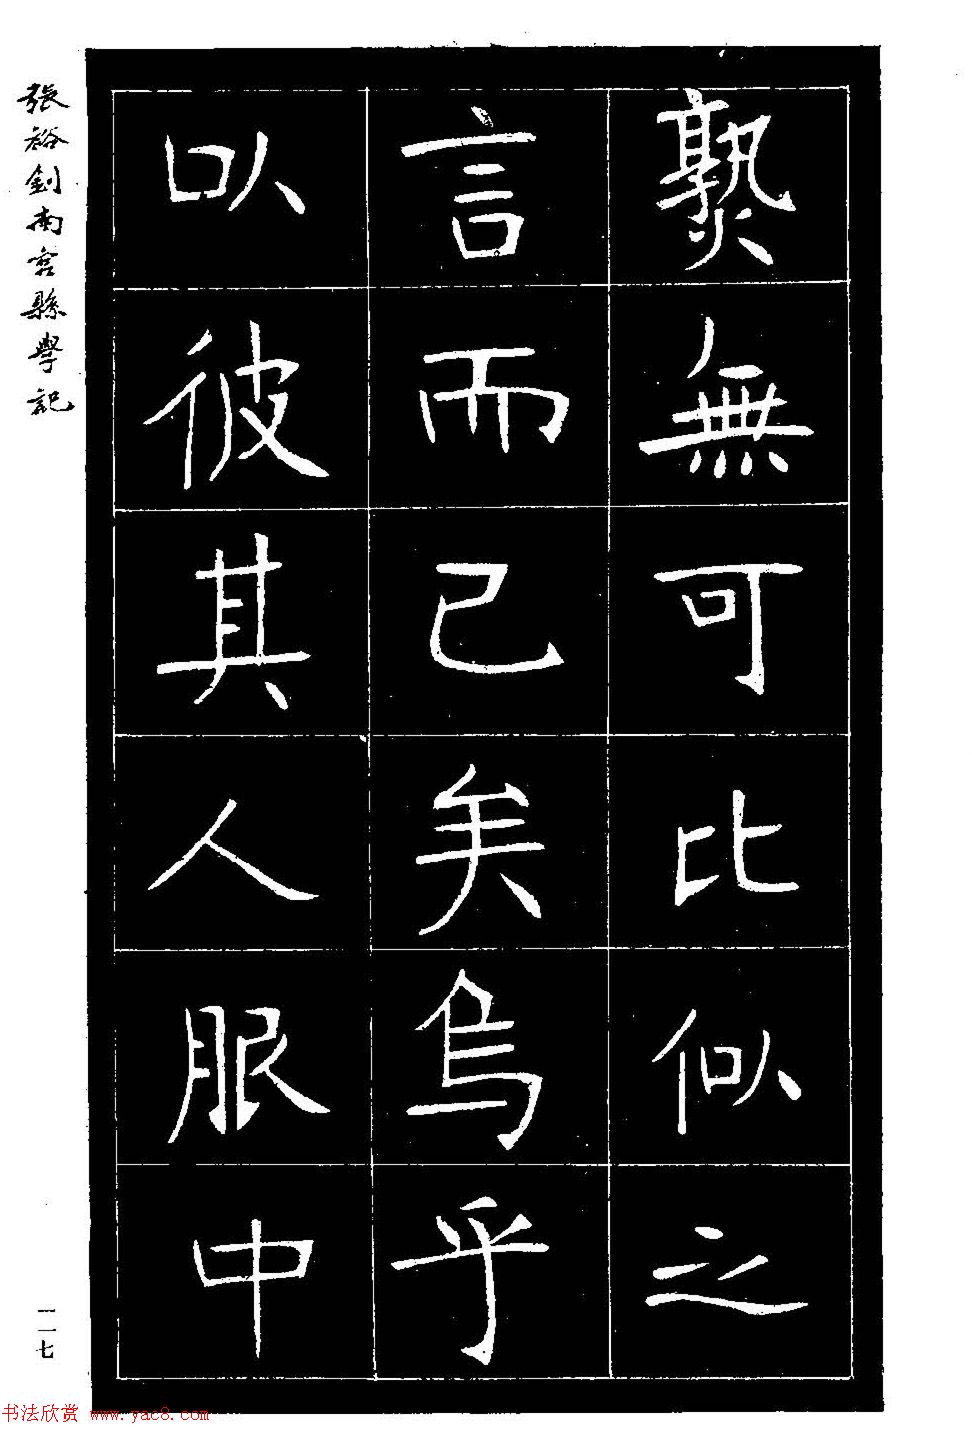 熟無可比似之
言而已矣烏乎
以彼其人服中
張裕釗南宮縣學記
一一七
书法欣赏 www.yac8.com